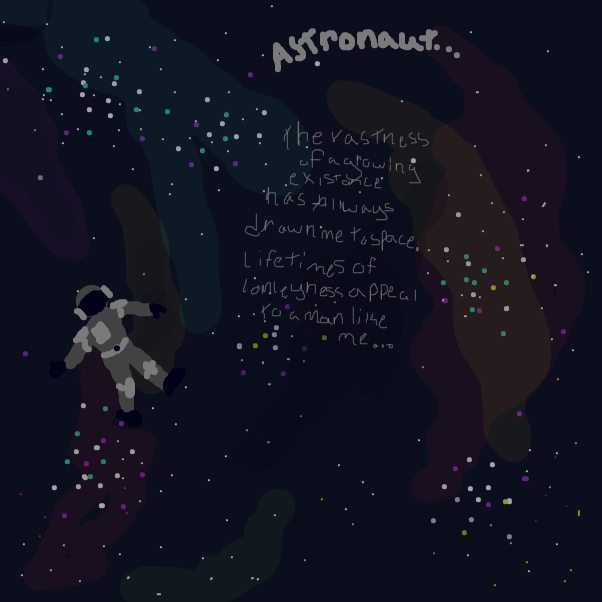 Astronaut...
The vastness
of a growing
existance
has Allways
drawn me to space.
Lifetimes of
lonleyness appeal
to a man like
me...